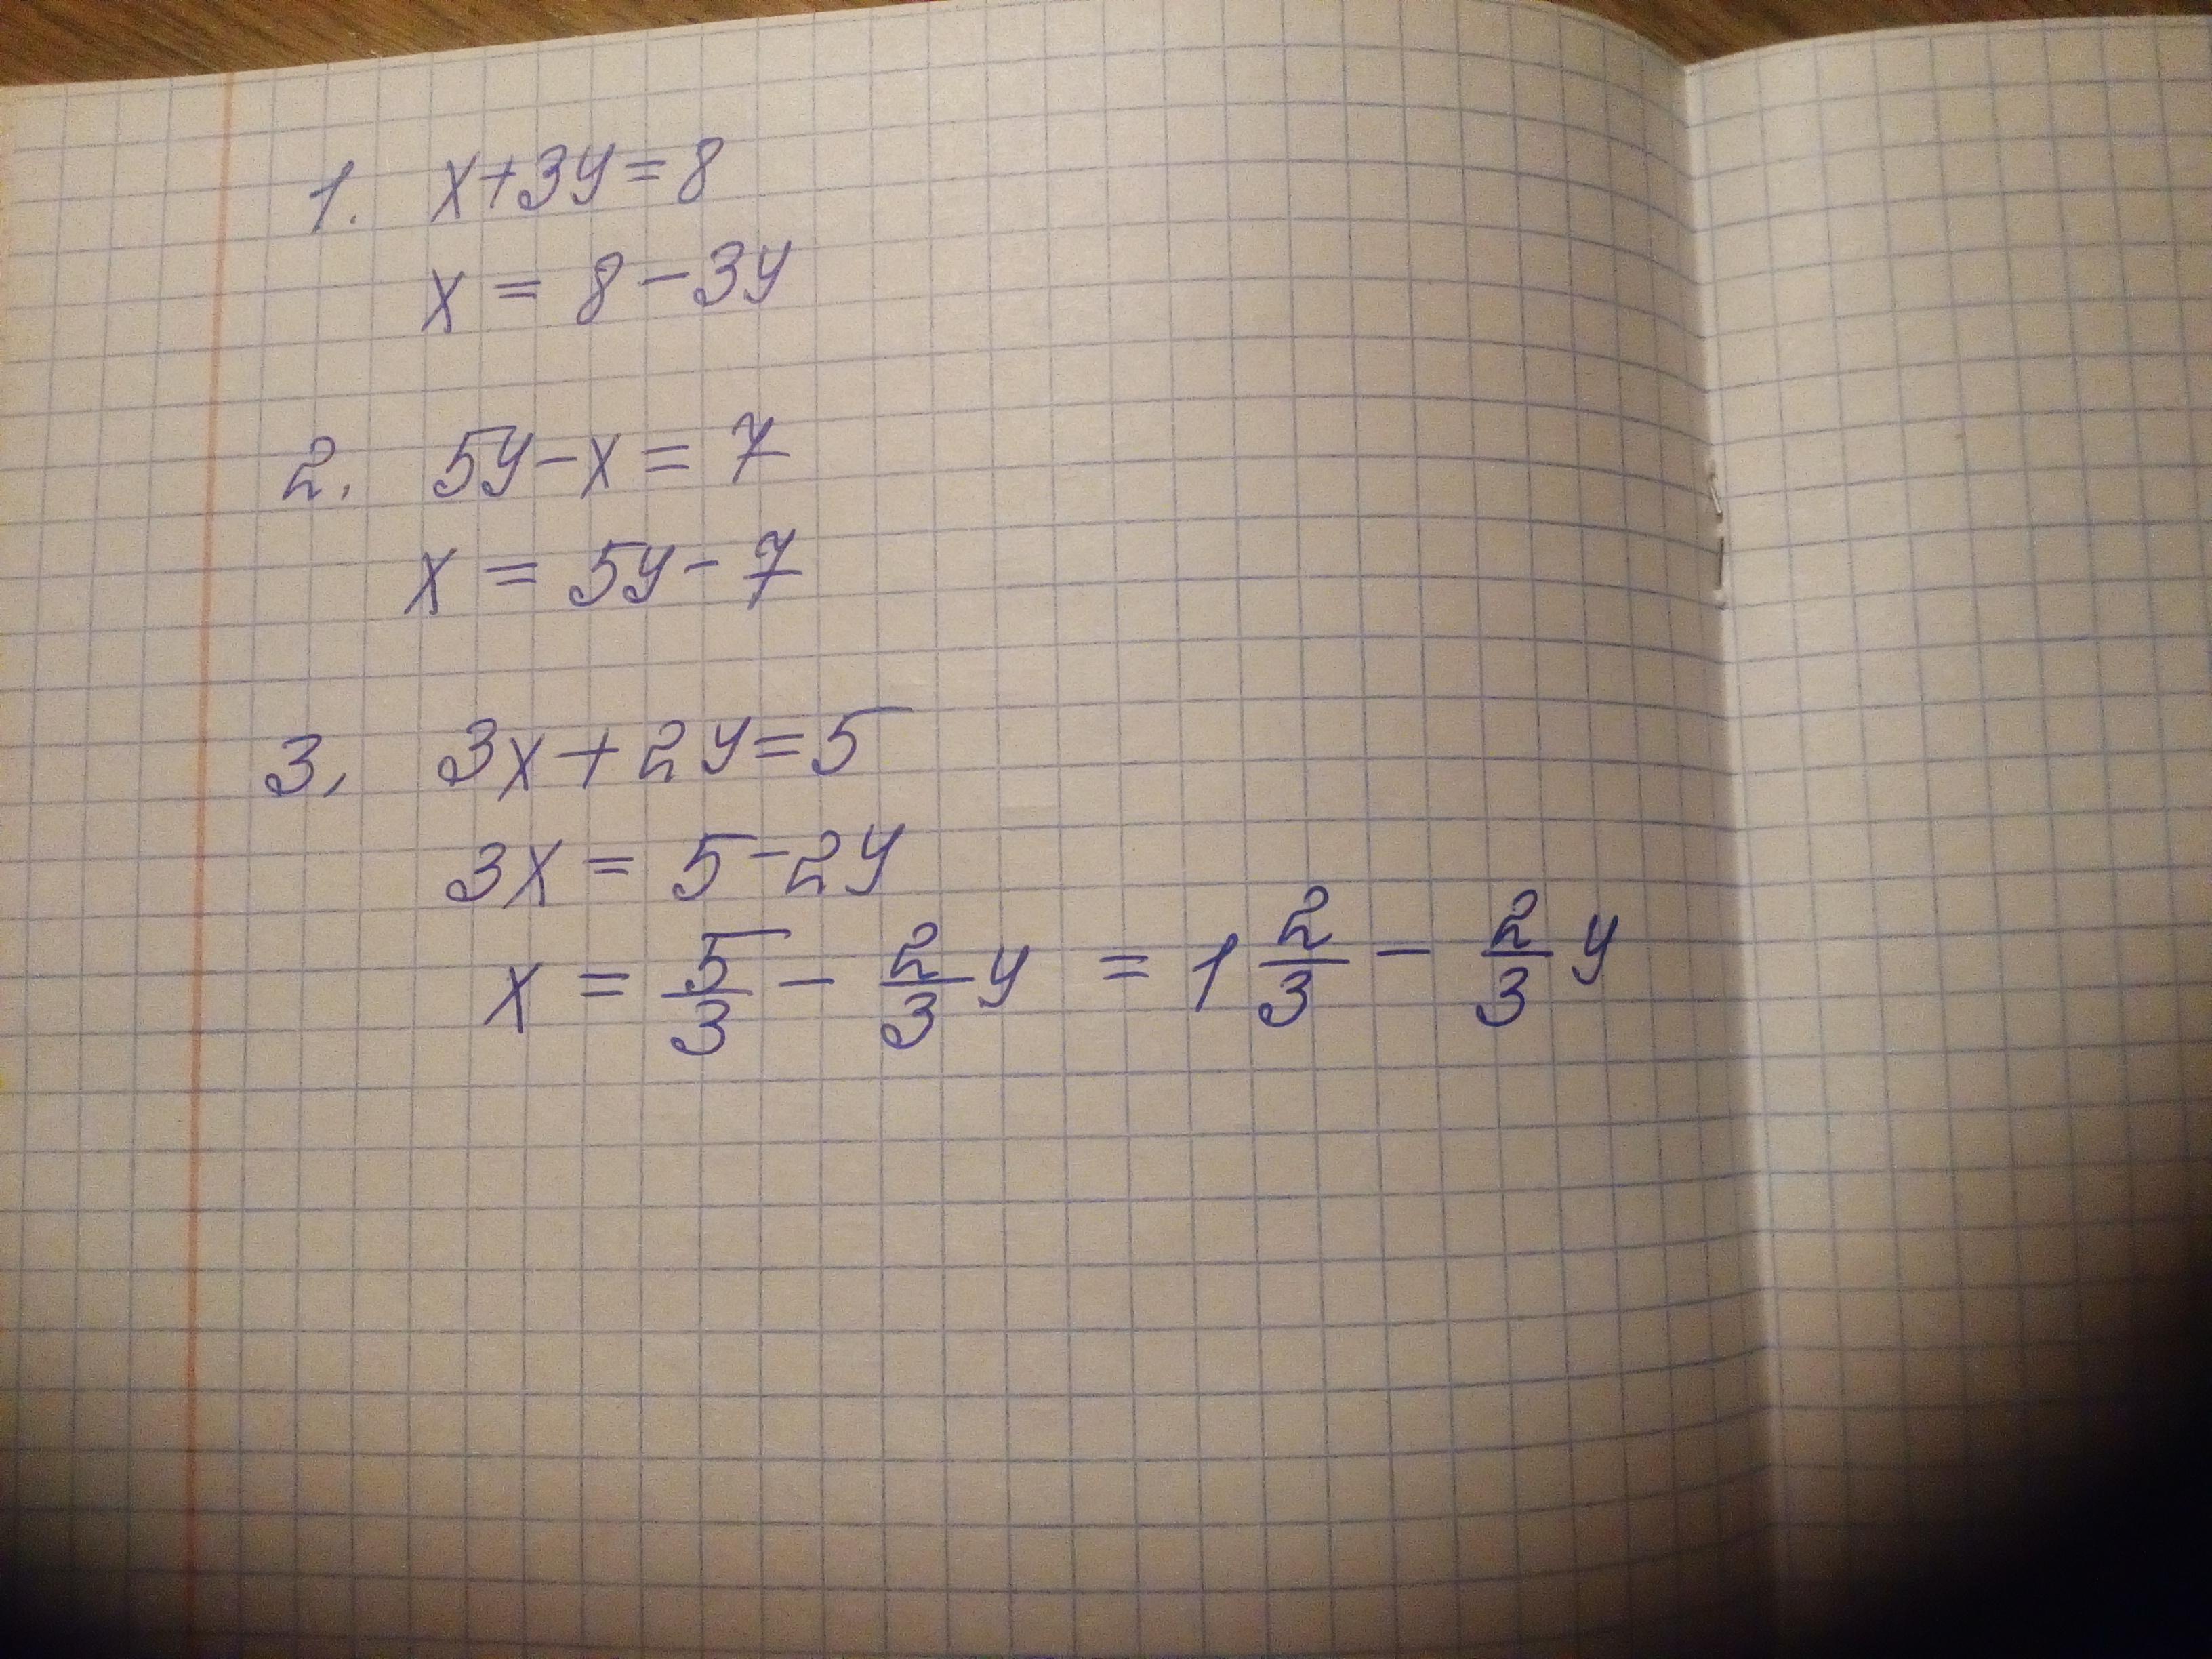 1. x+3y=8
x = 8-3y
2. 5y-x = 7
x = 5y-7
3. 3x+2y=5
3x = 5-2y
x = 5/3 - 2/3 y = 1 2/3 - 2/3 y